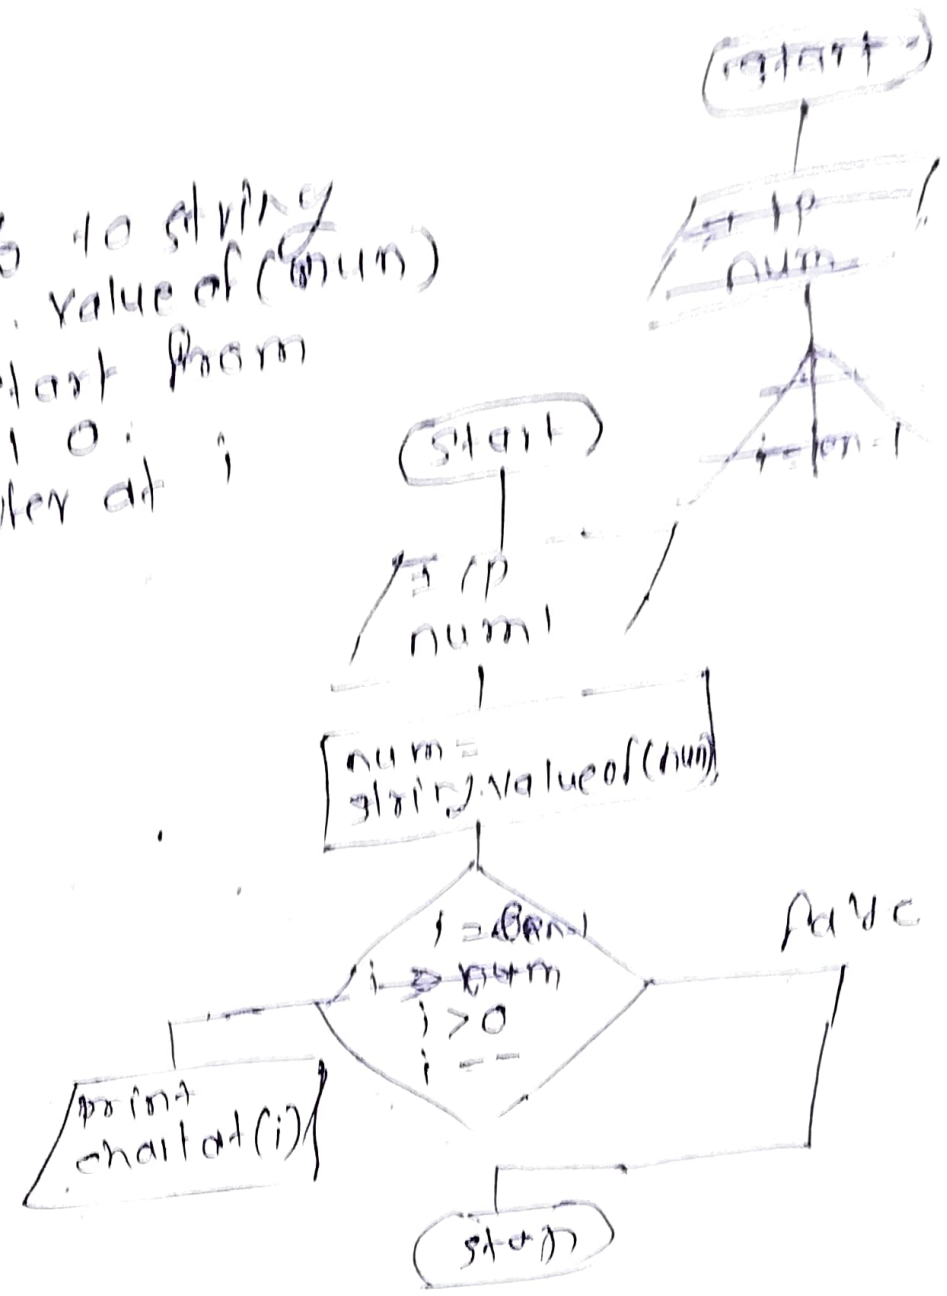 to string
. value of (num)
start from
0.
at i
start
I/p
num
i = len-1
start
I/p
num1
num =
string.valueof(num)
false
i = len-1
i > num
i > 0
i --
print
charat(i)
stop